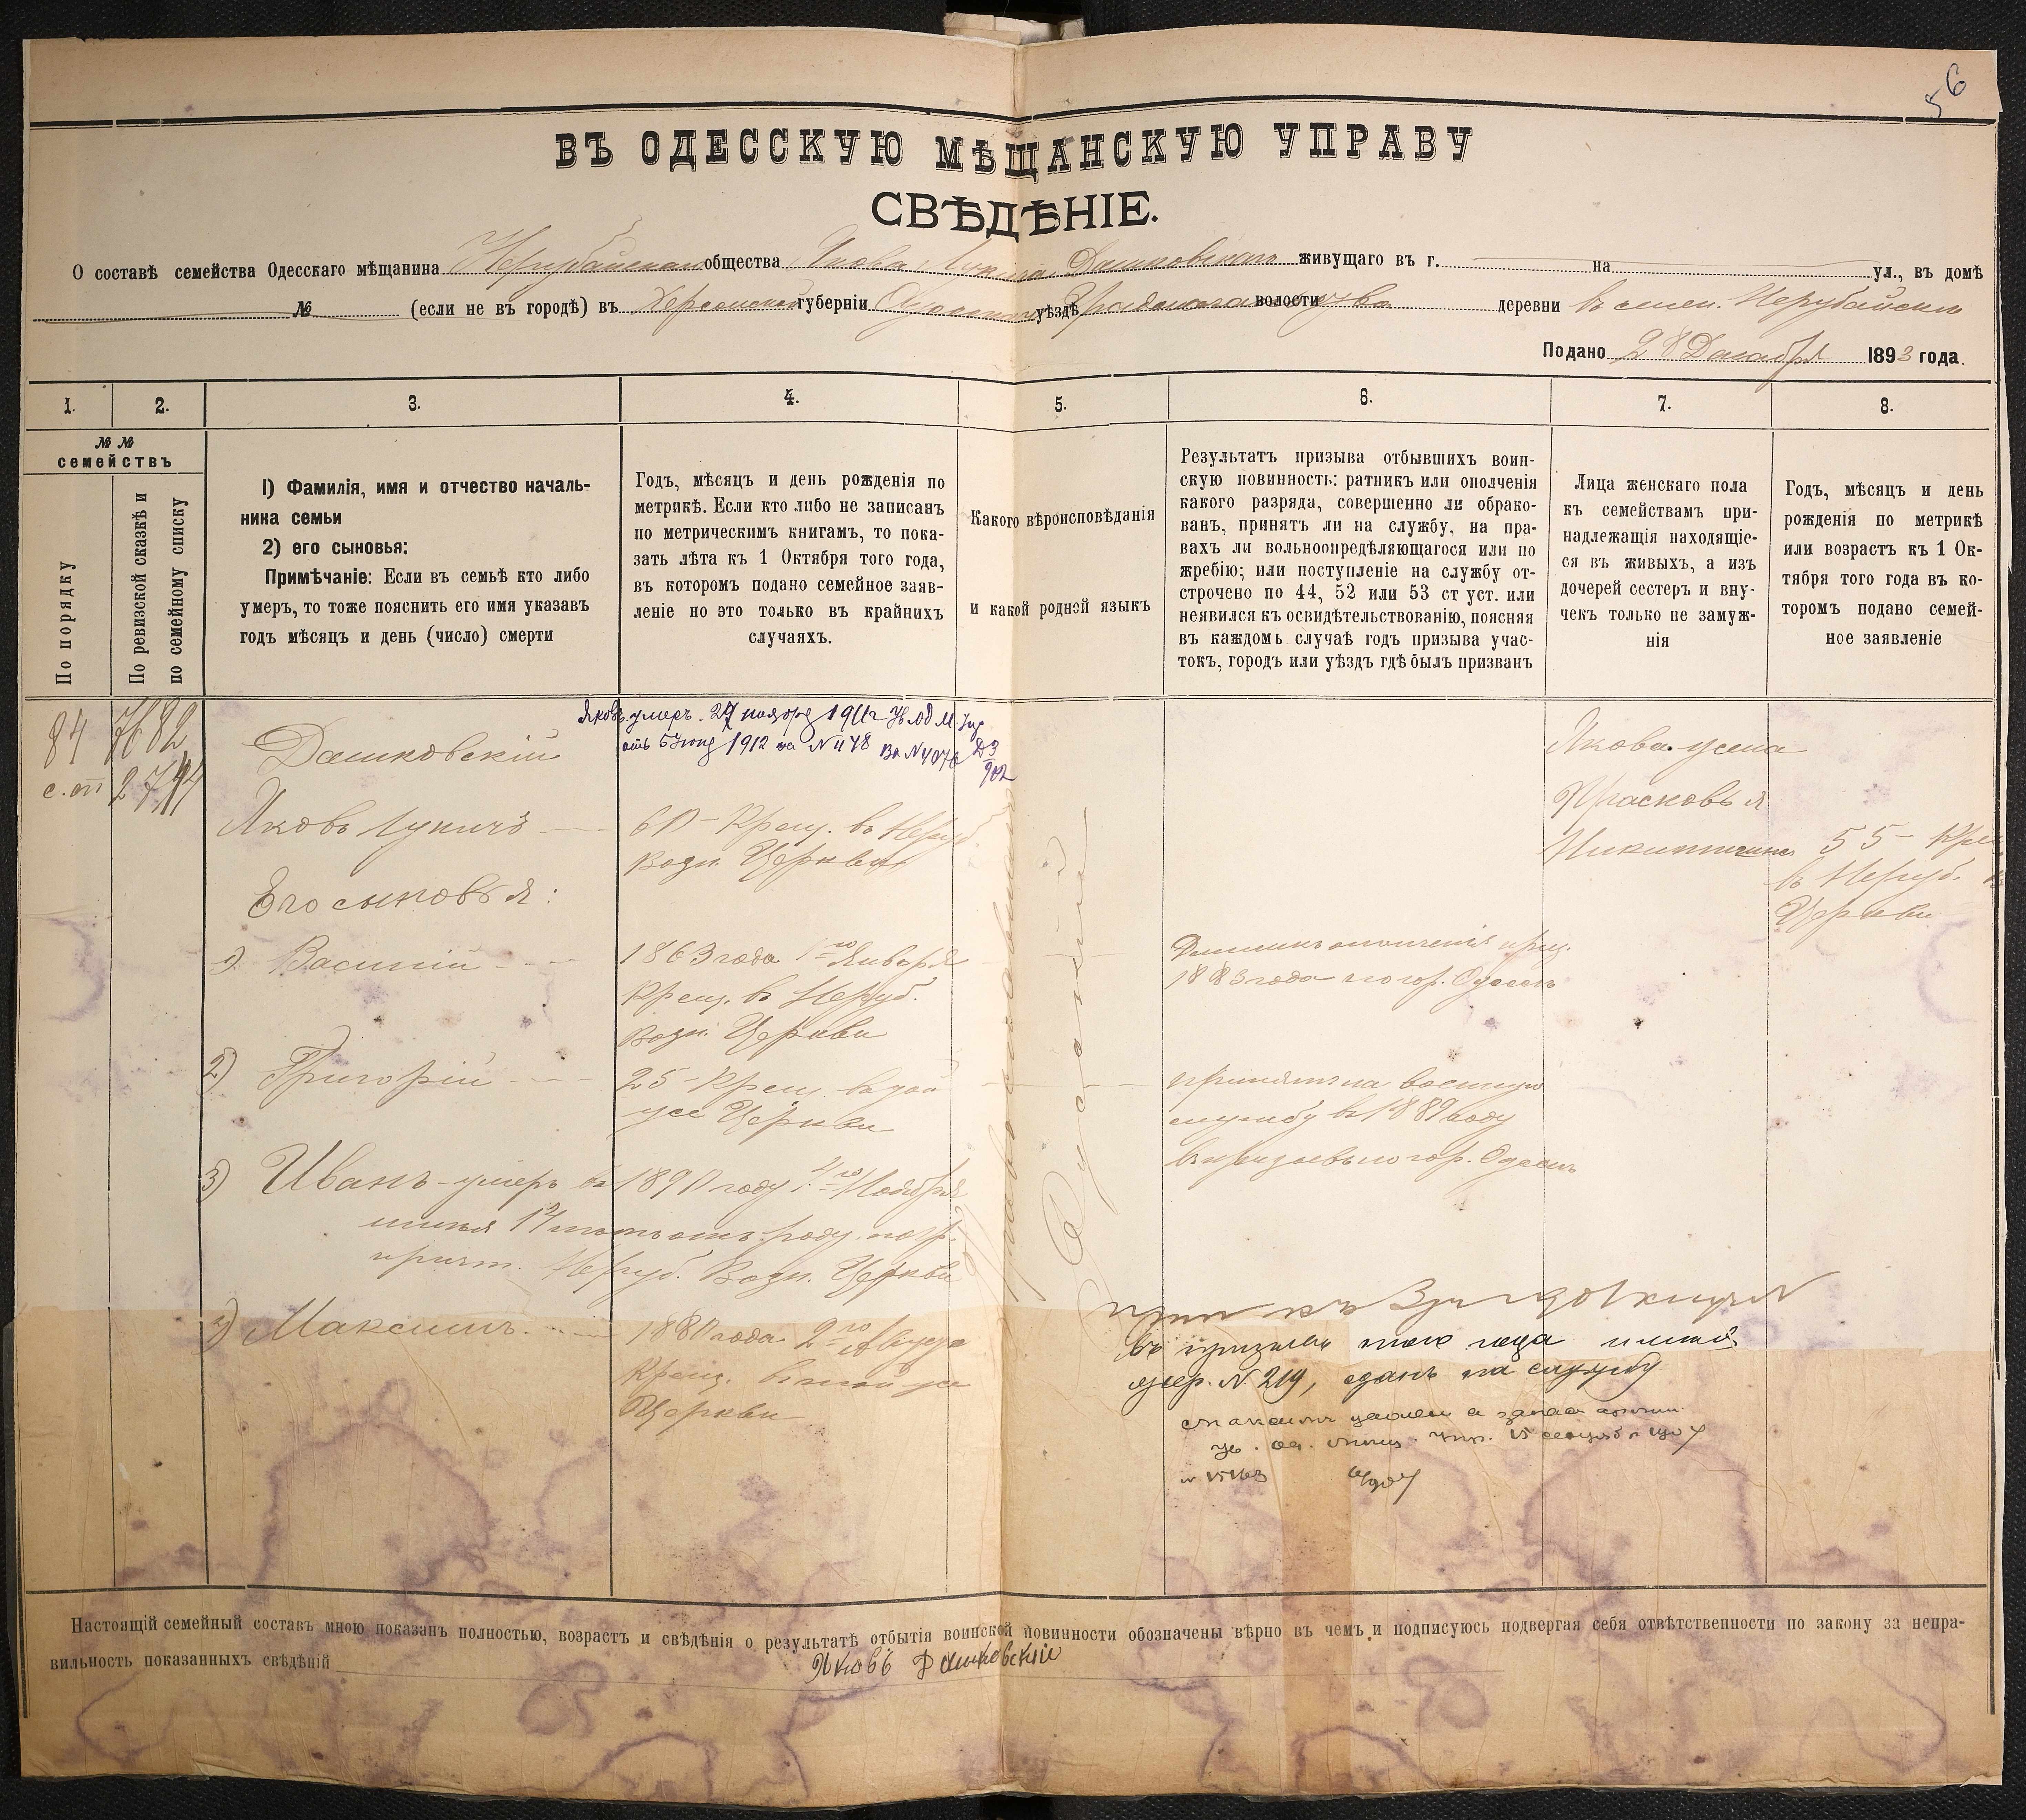 56
ВЪ ОДЕССКУЮ МѢЩАНСКУЮ УПРАВУ
СВѢДѢНІЕ.
О составѣ семейства Одесскаго мѣщанина Нерубайскаго общества Якова Лукича Дашковскаго живущаго въ г. на ул., въ домѣ
№ (если не въ городѣ) въ Херсонской губерніи Одесскаго уѣздѣ Градоначальства волости деревни въ селен. Нерубайском
Подано 28 Декабря 1893 года.
1. 2. 3. 4. 5. 6. 7. 8.
№ №
семействъ
По порядку
По ревизской сказкѣ и
по семейному списку
I) Фамилія, имя и отчество началь-
ника семьи
2) его сыновья:
Примѣчаніе: Если въ семьѣ кто либо
умеръ, то тоже пояснить его имя указавъ
годъ мѣсяцъ и день (число) смерти
Годъ, мѣсяцъ и день рожденія по
метрикѣ. Если кто либо не записанъ
по метрическимъ книгамъ, то пока-
зать лѣта къ 1 Октября того года,
въ которомъ подано семейное заяв-
леніе но это только въ крайнихъ
случаяхъ.
Какого вѣроисповѣданія
и какой родной языкъ
Результатъ призыва отбывшихъ воин-
скую повинность: ратникъ или ополченія
какого разряда, совершенно ли обрако-
ванъ, принятъ ли на службу, на пра-
вахъ ли вольноопредѣляющагося или по
жребію; или поступленіе на службу от-
строчено по 44, 52 или 53 ст уст. или
неявился къ освидѣтельствованію, поясняя
въ каждомъ случаѣ годъ призыва учас-
токъ, городъ или уѣздъ гдѣ былъ призванъ
Лица женскаго пола
къ семействамъ при-
надлежащія находящіе-
ся въ живыхъ, а изъ
дочерей сестеръ и вну-
чекъ только не замуж-
нія
Годъ, мѣсяцъ и день
рожденія по метрикѣ
или возрастъ къ 1 Ок-
тября того года въ ко-
торомъ подано семей-
ное заявленіе
84 7682
2794
Яковъ умеръ 27 ноября 1911 г Ув Од М. Упр
отъ 5 Іюня 1912 за N 478
Дашковскій
Яковъ Лукичъ
60 Крещ. въ Неруб.
Возн. Церкви
Его сыновья:
1) Василій
1863 года 1го Января
Крещ. в Неруб.
Возн. Церкви
2) Григорій
25 Крещ. в той
же Церкви
3) Иванъ умеръ в 1890 году 4го Ноября
имѣя 14 лѣтъ отъ роду
Неруб. Возн. Церкви
4) Максимъ
1880 года 2го Августа
Крещ. в той же
Церкви
Православнаго
Русскій
ополченія приз.
1883 года по гор. Одессѣ
принятъ на военную
службу в 1889 году
в призывъ по гор. Одессѣ
въ призывъ того года
жер. N 219, сданъ на службу
Якова жена
Прасковья
Никитична
55 Крещ.
в Неруб.
Церкви
Настоящій семейный составъ мною показанъ полностью, возрастъ и свѣдѣнія о результатѣ отбытія воинской повинности обозначены вѣрно въ чемъ и подписуюсь подвергая себя отвѣтственности по закону за непра-
вильность показанныхъ свѣдѣній Яковъ Дашковскій